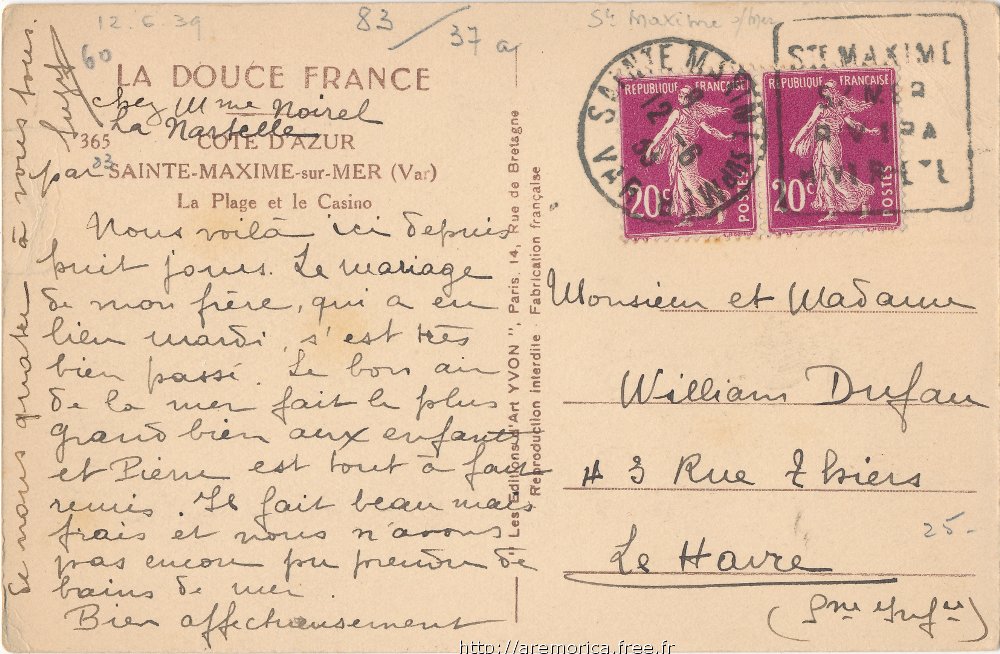 12.6.39
83/37a
Ste Maxime s/Mer
60
LA DOUCE FRANCE
chez Mme Noirel
La Nartelle
365
CÔTE D'AZUR
83
SAINTE-MAXIME-sur-MER (Var)
La Plage et le Casino
Nous voilà ici depuis
huit jours. Le mariage
de mon frère, qui a eu
lieu mardi, s'est très
bien passé. Le bon air
de la mer fait le plus
grand bien aux enfants
et Pierre est tout à fait
remis. Il fait beau mais
frais et nous n'avons
pas encore pu prendre de
bains de mer.
Bien affectueusement
de nous quatre à vous tous
par
"Les Editions d'Art YVON", Paris, 14, Rue de Bretagne
Reproduction interdite - Fabrication française
SAINTE MAXIME
VAR
12 - 6
39
STE MAXIME
REPUBLIQUE FRANÇAISE
20c
POSTES
REPUBLIQUE FRANÇAISE
20c
POSTES
Monsieur et Madame
William Dufau
43 Rue Thiers
Le Havre
(Sne Infre)
25-
http://aremorica.free.fr